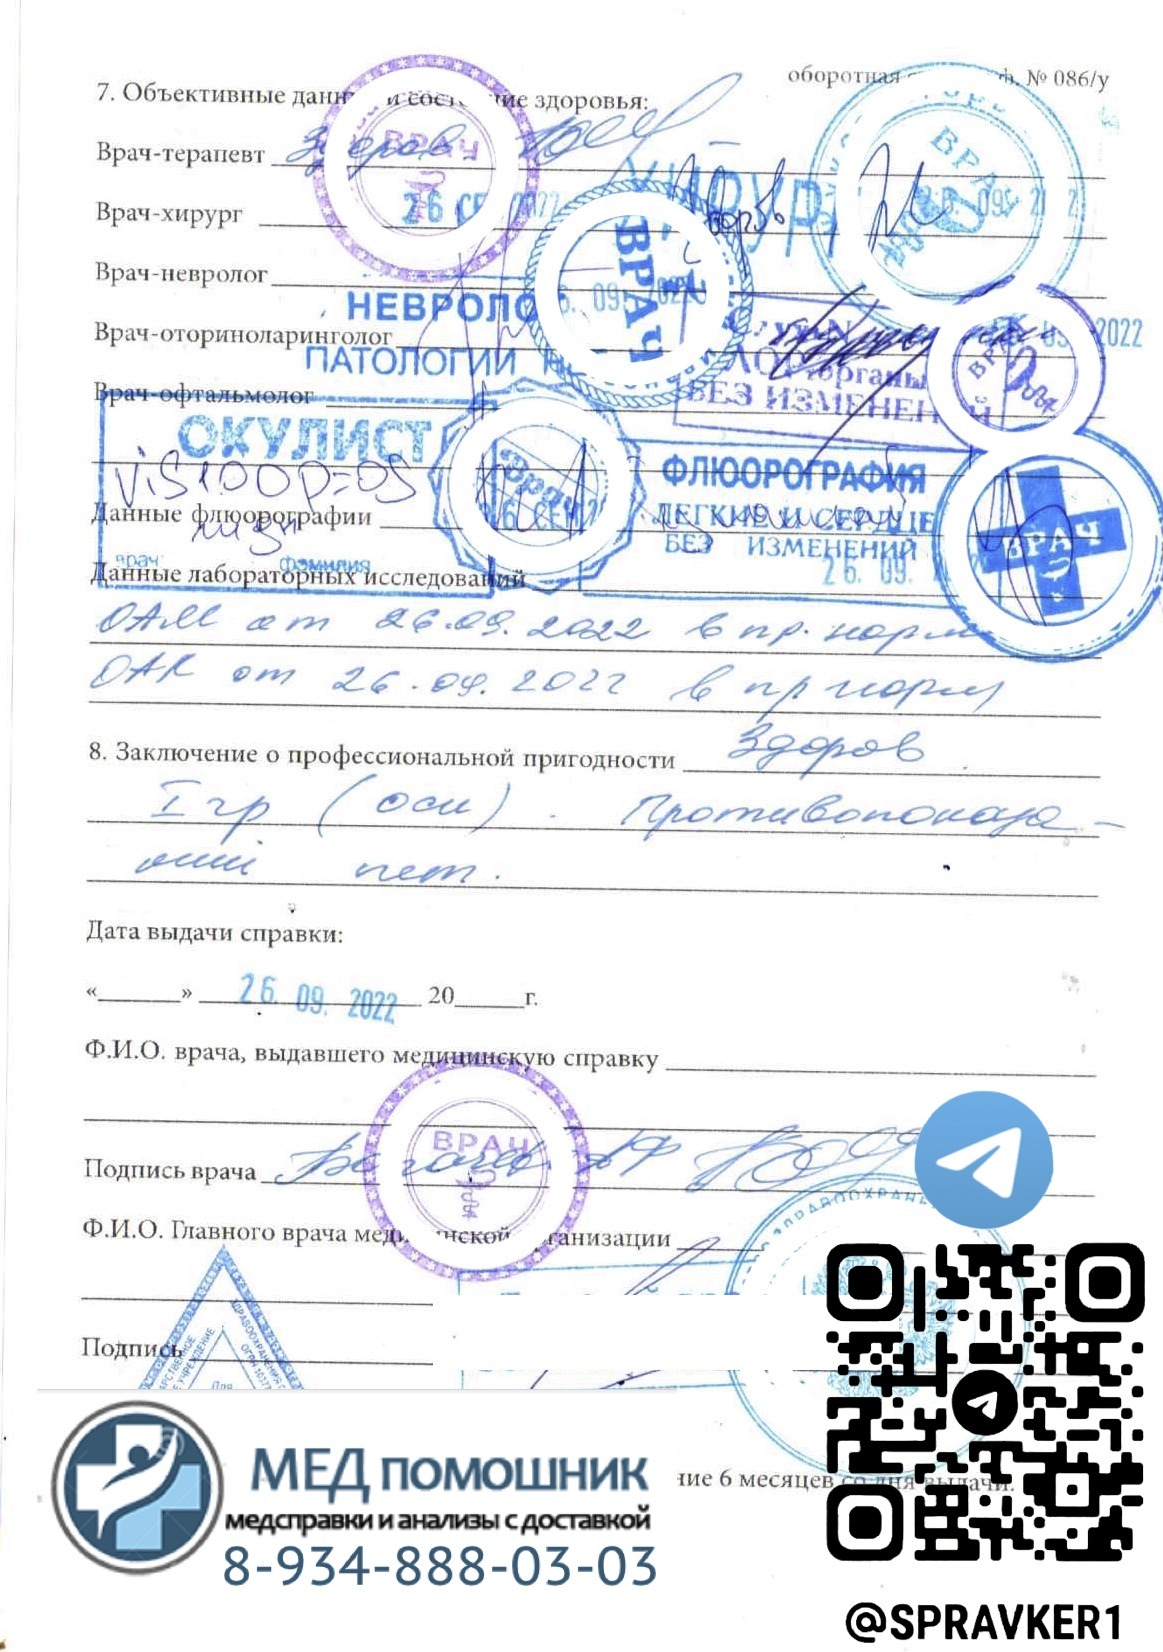 оборотная ф. № 086/у
7. Объективные данн и состояние здоровья:
Врач-терапевт Здоров
ВРАЧ
26 СЕ 2022
Врач-хирург
Хирург
здоров
ВРАЧ
26 09 2022
Врач-невролог
НЕВРОЛО
ПАТОЛОГИИ Н
ВРАЧ
09 2022
Врач-оториноларинголог
ЛОР органы
БЕЗ ИЗМЕНЕНИЙ
ВРАЧ
09 2022
Врач-офтальмолог
ОКУЛИСТ
Vis 1.0 OD=OS
врач: фамилия
Врач
26 СЕН 2
Данные флюорографии
ФЛЮОРОГРАФИЯ
ЛЕГКИЕ И СЕРДЦЕ
БЕЗ ИЗМЕНЕНИЙ
26. 09.
ВРАЧ
Данные лабораторных исследований
ОАМ от 26.09.2022 в пр. норм
ОАК от 26.09.2022 в пр норм
8. Заключение о профессиональной пригодности Здоров
I гр (осн). Противопоказа-
ний нет.
Дата выдачи справки:
«______» 26. 09. 2022 20_____г.
Ф.И.О. врача, выдавшего медицинскую справку
ВРАЧ
Подпись врача
Ф.И.О. Главного врача медицинской организации
ЗДРАВООХРАНЕН
Подпись
ЗДРАВООХРАНЕНИЯ
УЧРЕЖДЕНИЕ
Для
ние 6 месяцев со дня выдачи.
МЕД ПОМОШНИК
медсправки и анализы с доставкой
8-934-888-03-03
@SPRAVKER1